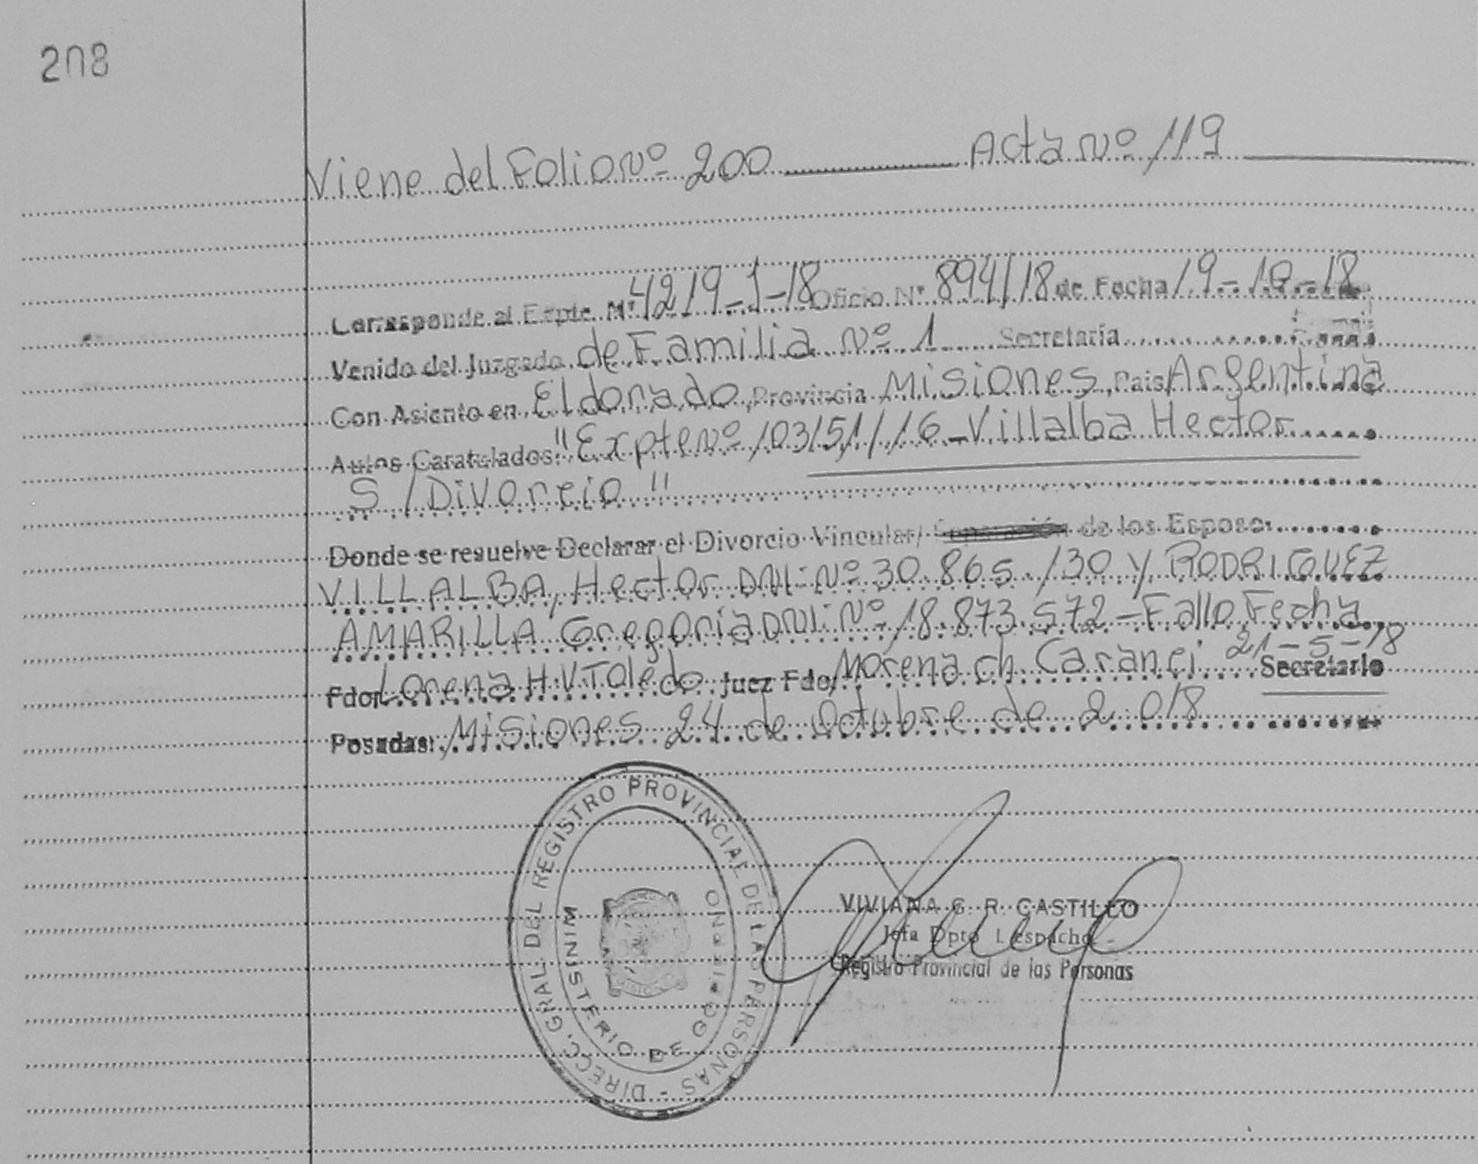 208
Viene del Folio Nº 200 Acta Nº 119
Corresponde al Expte. Nº 4219-J-18 Oficio Nº 894/18 de Fecha 19-10-18
Venido del Juzgado de Familia Nº 1 Secretaría
Con Asiento en Eldorado, Provincia Misiones, Pais Argentina
Autos Caratulados: "Expte Nº 103151/16-Villalba Hector
S/Divorcio"
Donde se resuelve Declarar el Divorcio Vincular/ de los Esposo
VILLALBA, Hector DNI: Nº 30.865.130 y RODRIGUEZ
AMARILLA Gregoria DNI: Nº 18.873.572-Fallo Fecha
21-5-18
Fdo. Lorena H.V. Toledo Juez Fdo. Morena ch. Secretario
Posadas: Misiones 24 de Octubre de 2.018
DIRECC. GRAL. DEL REGISTRO PROVINCIAL DE LAS PERSONAS -
MINISTERIO DE GOBIERNO
VIVIANA G. R. CASTILLO
Jefa Dpto. Despacho
Registro Provincial de las Personas